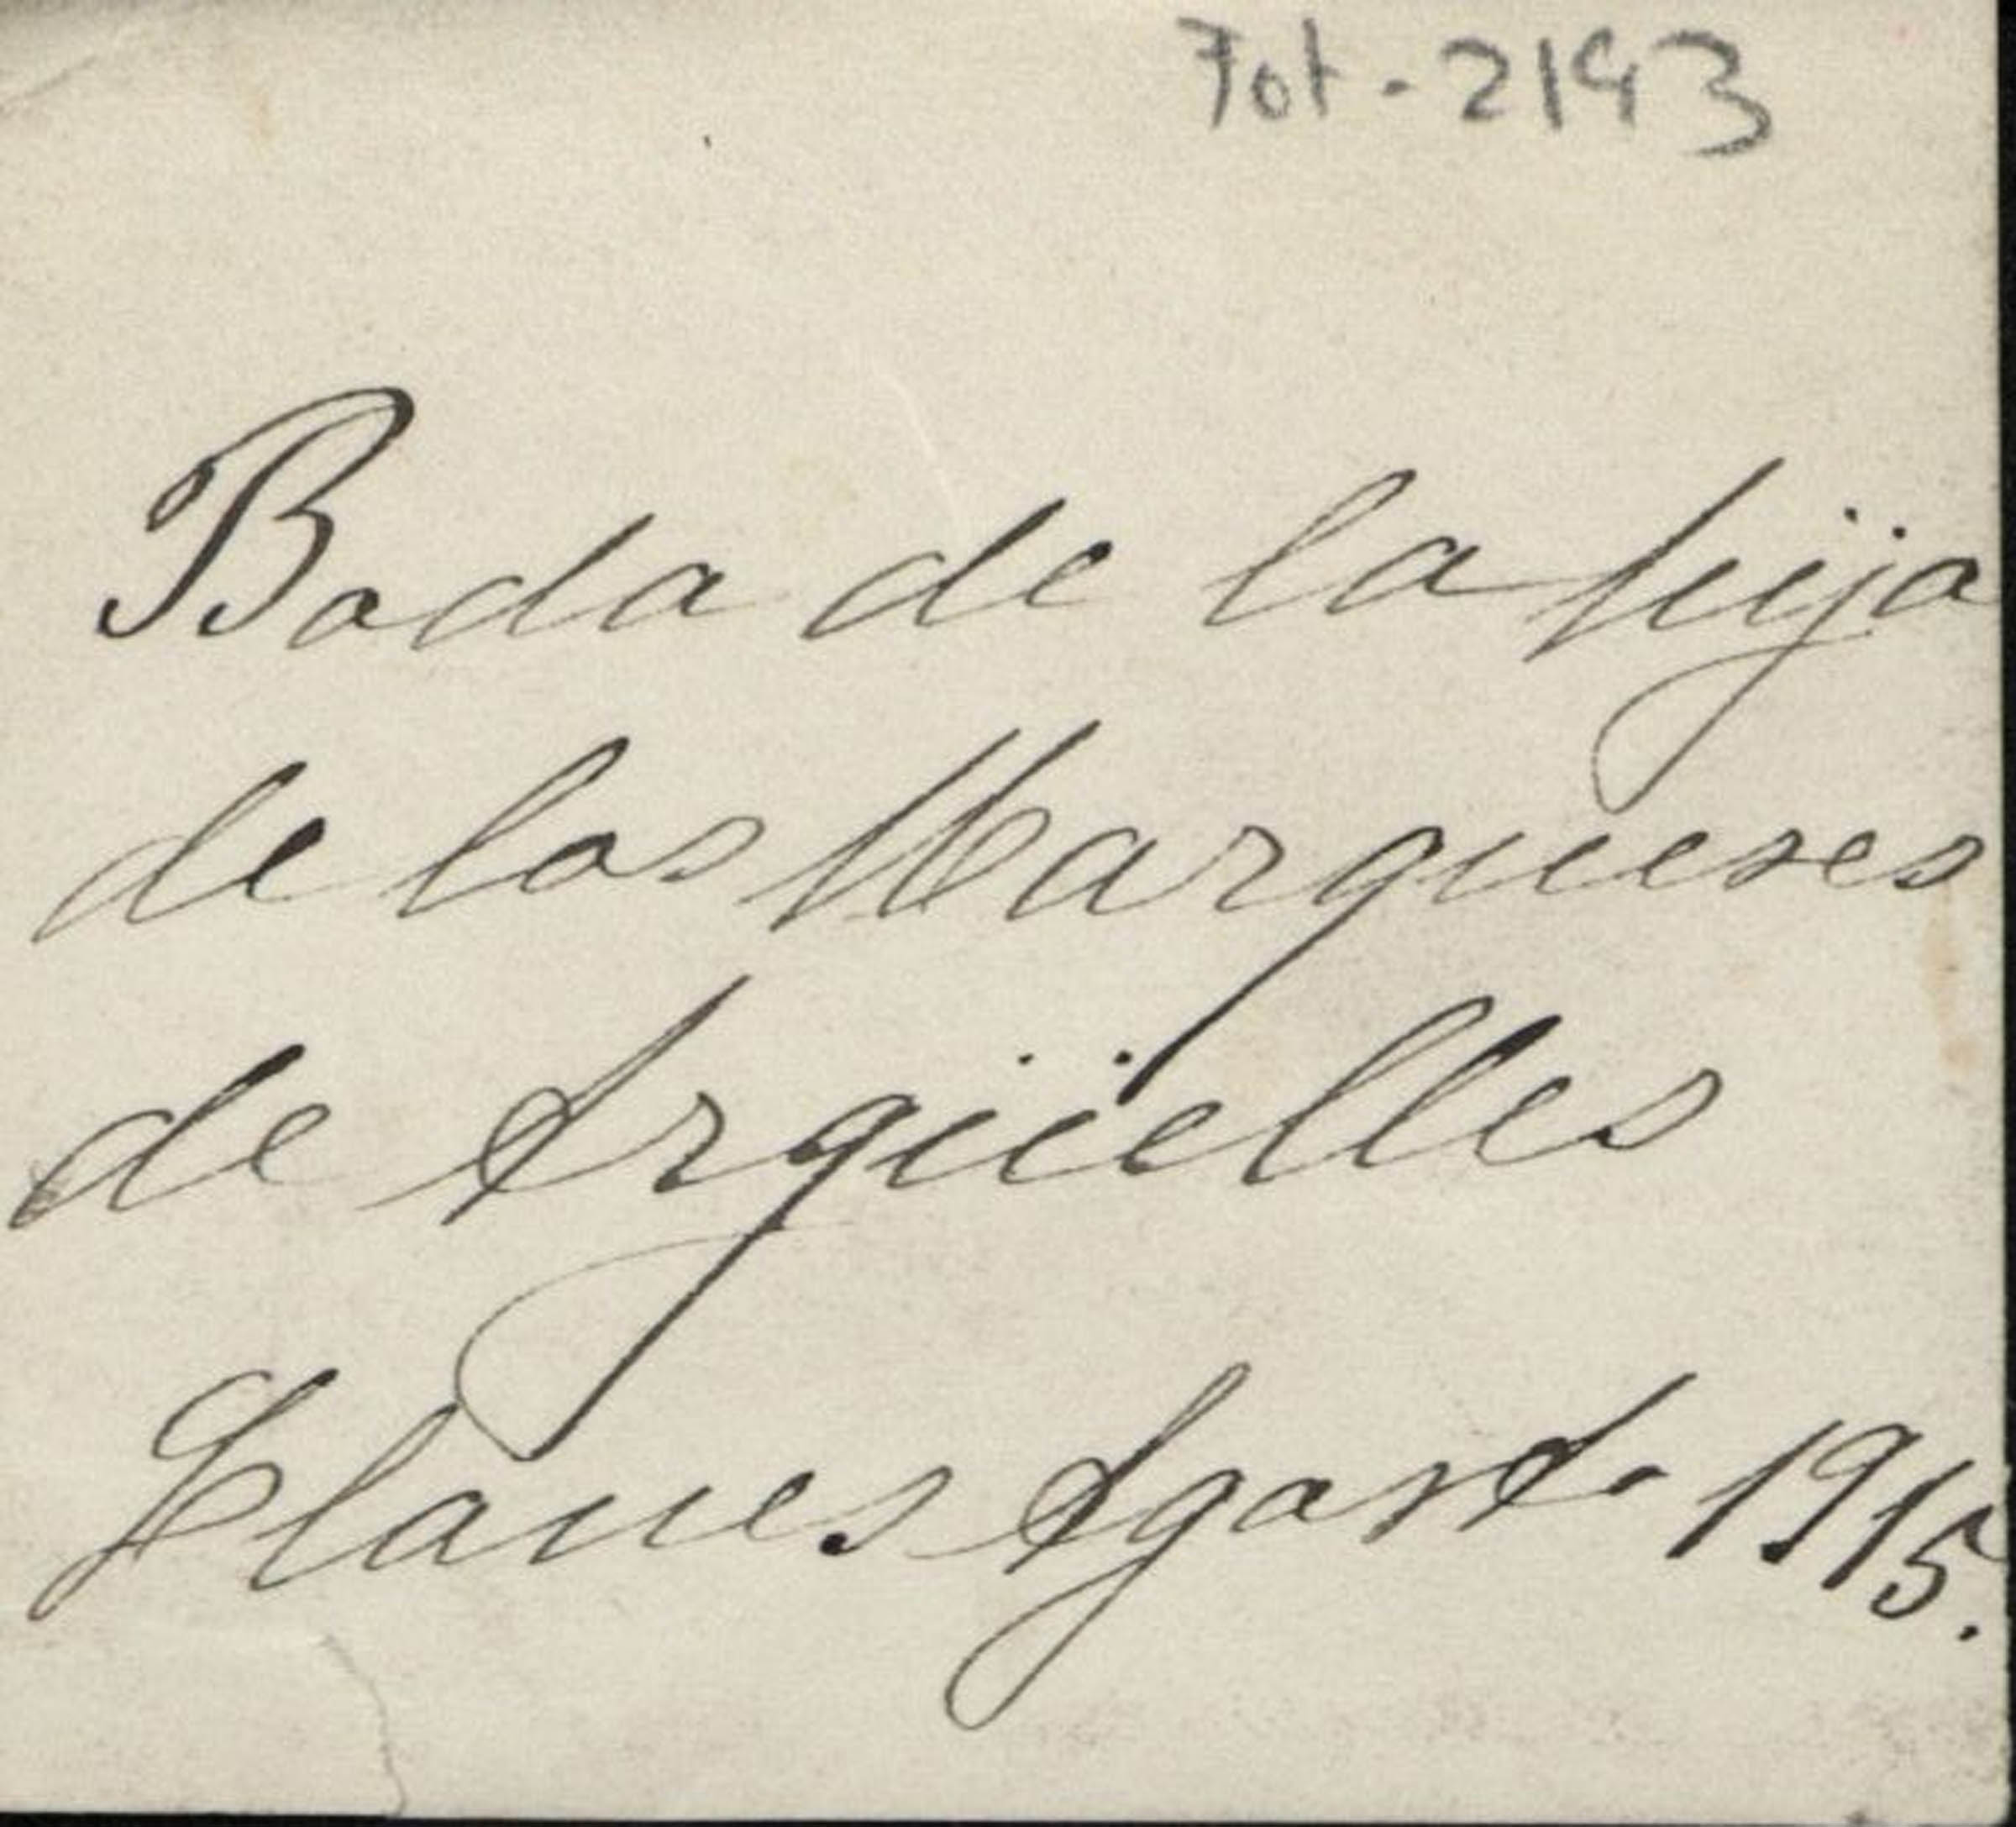 Fot-2193
Boda de la hija
de los Marqueses
de Argüelles
Llanes Agosto 1915.